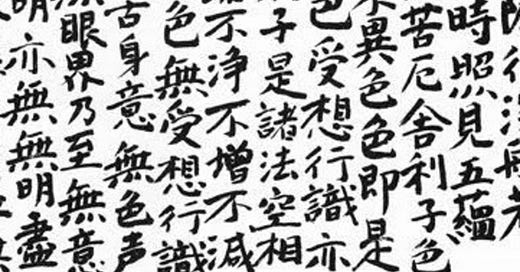 行深
時照見五蘊
苦厄舍利子色
不異色色即是
色受想行識亦
子是諸法空相
不浄不增不減
色無受想行識
舌身意無色声
無眼界乃至無意
明亦無無明盡